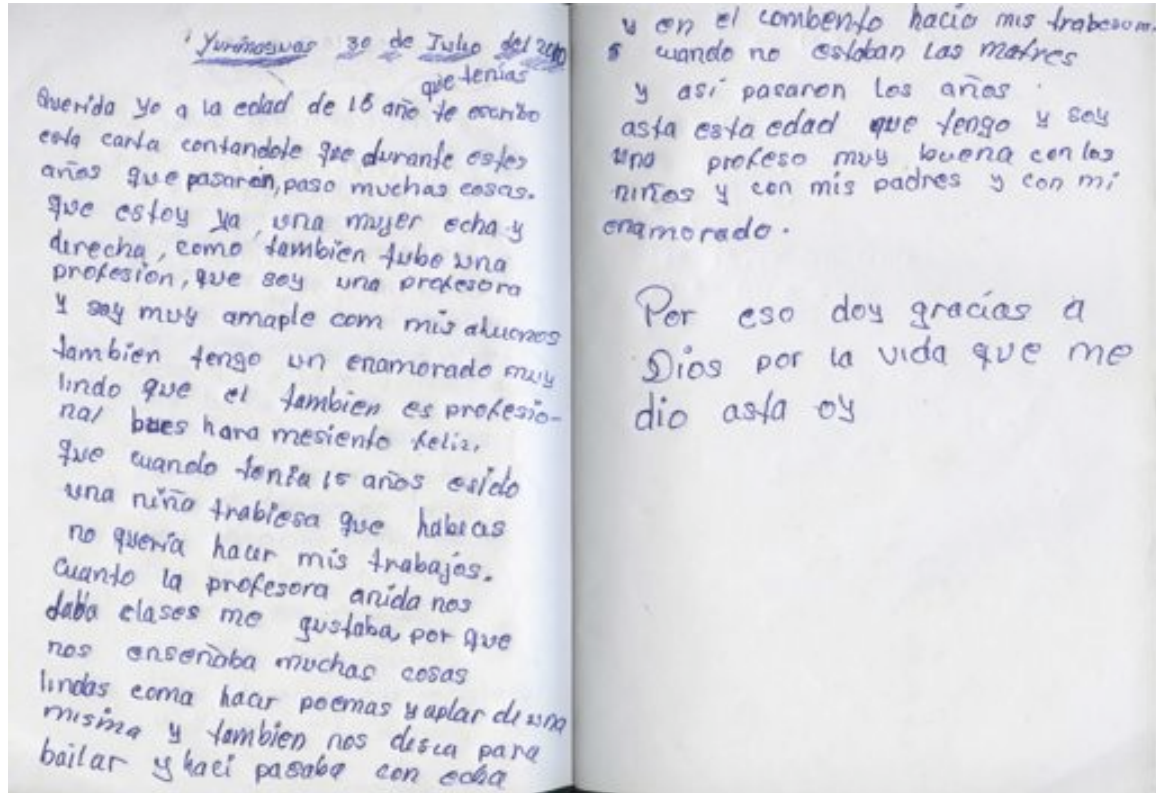 Yurimaguas 30 de Julio del 2010
que tenías
Querida yo a la edad de 15 año te escribo
esta carta contandote que durante estes
años que pasarón, paso muchas cosas.
que estoy ya una mujer echa y
direcha, como tambien tube una
profesion, que soy una profesora
y soy muy amaple com mis alucnos
tambien tengo un enamorado muy
lindo que el tambien es profesio-
nal bues hara mesiento feliz.
que cuando tenia 15 años esido
una niña trabiesa que habias
no quería hacer mis trabajos.
Cuanto la profesora anida nos
daba clases me gustaba, por que
nos enseñaba muchas cosas
lindas coma hacer poemas y aplar de una
misma y tambien nos desia para
bailar y haci pasaba con ecba
y en el combento hacia mis trabesuras
cuando no estaban las matres
y así pasaron los años.
asta esta edad que tengo y soy
una profeso muy buena con los
niños y con mis padres y con mi
enamorado.
Por eso doy gracías a
Dios por la vida que me
dio asta oy